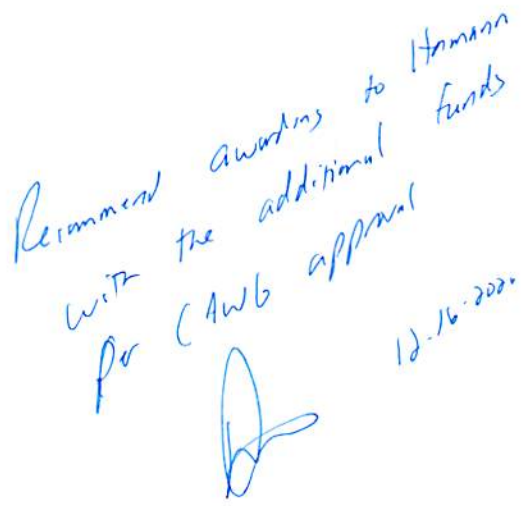 Recommend awarding to Hamann
with the additional funds
Per CAWG approval
12-16-2020